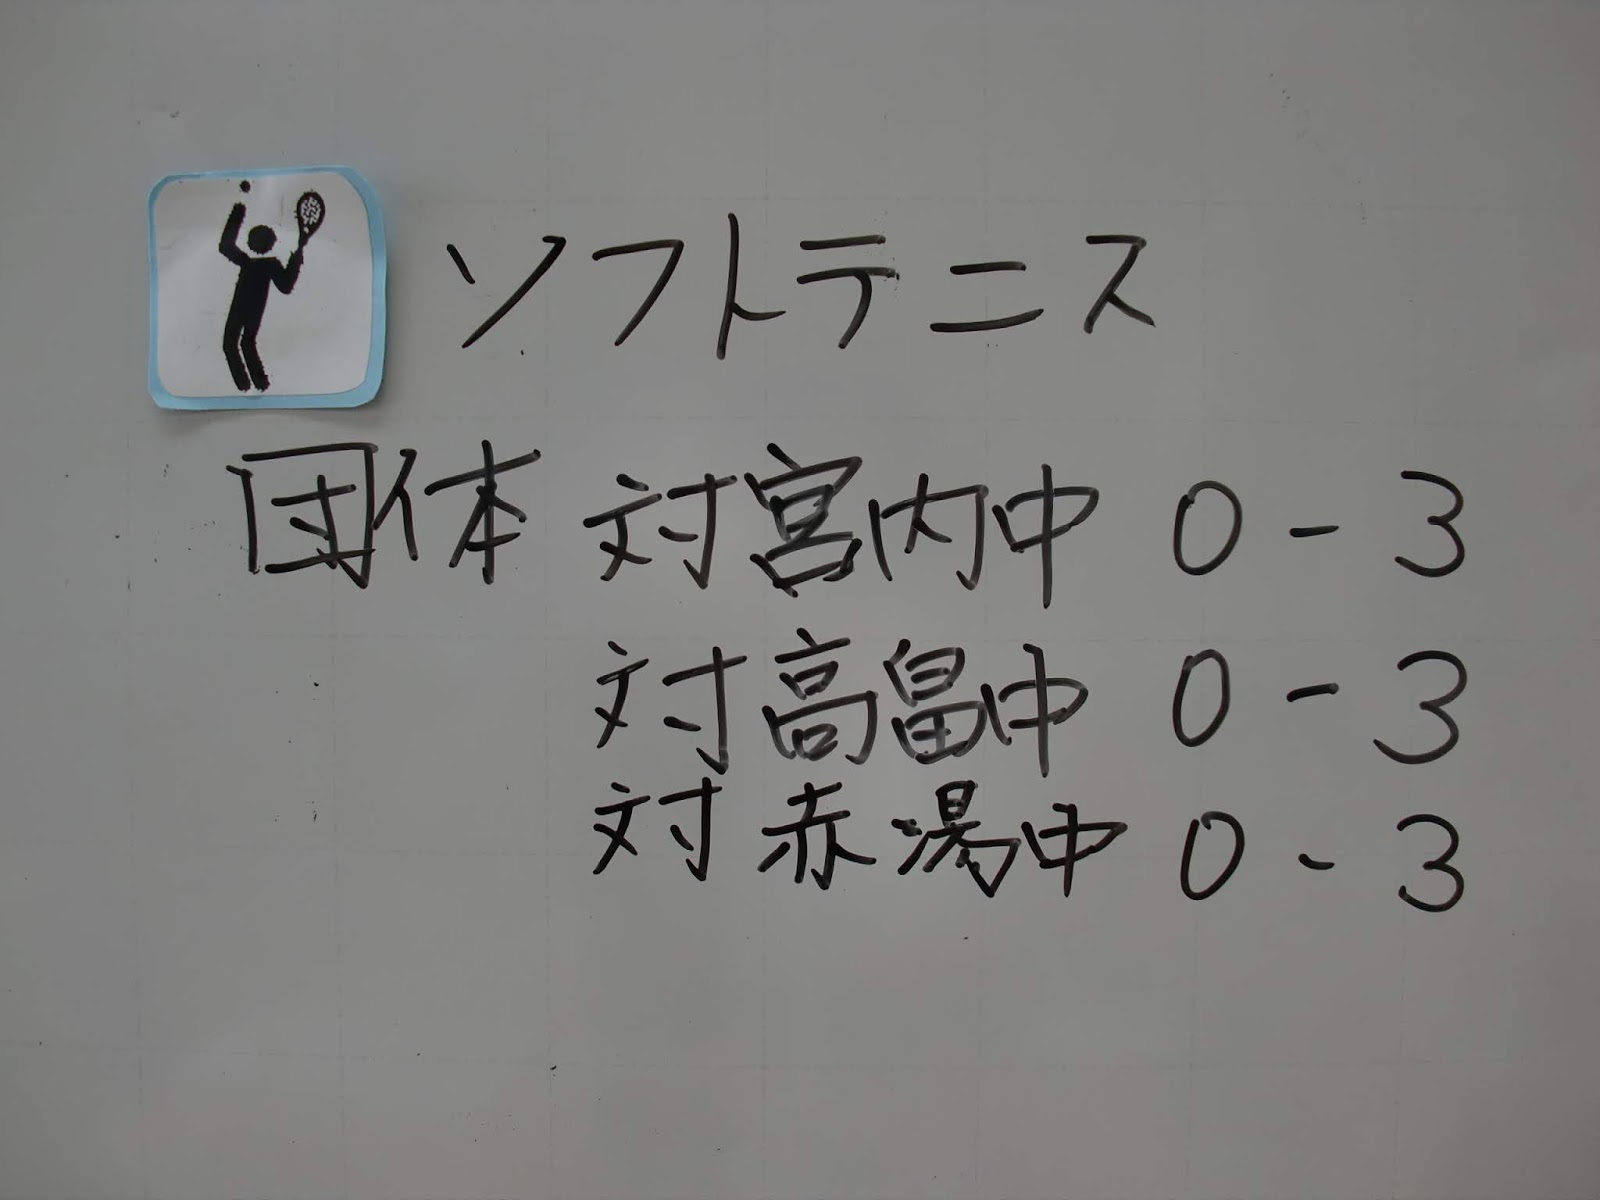 ソフトテニス
団体 対宮内中 0 - 3
対高畠中 0 - 3
対赤湯中 0 - 3